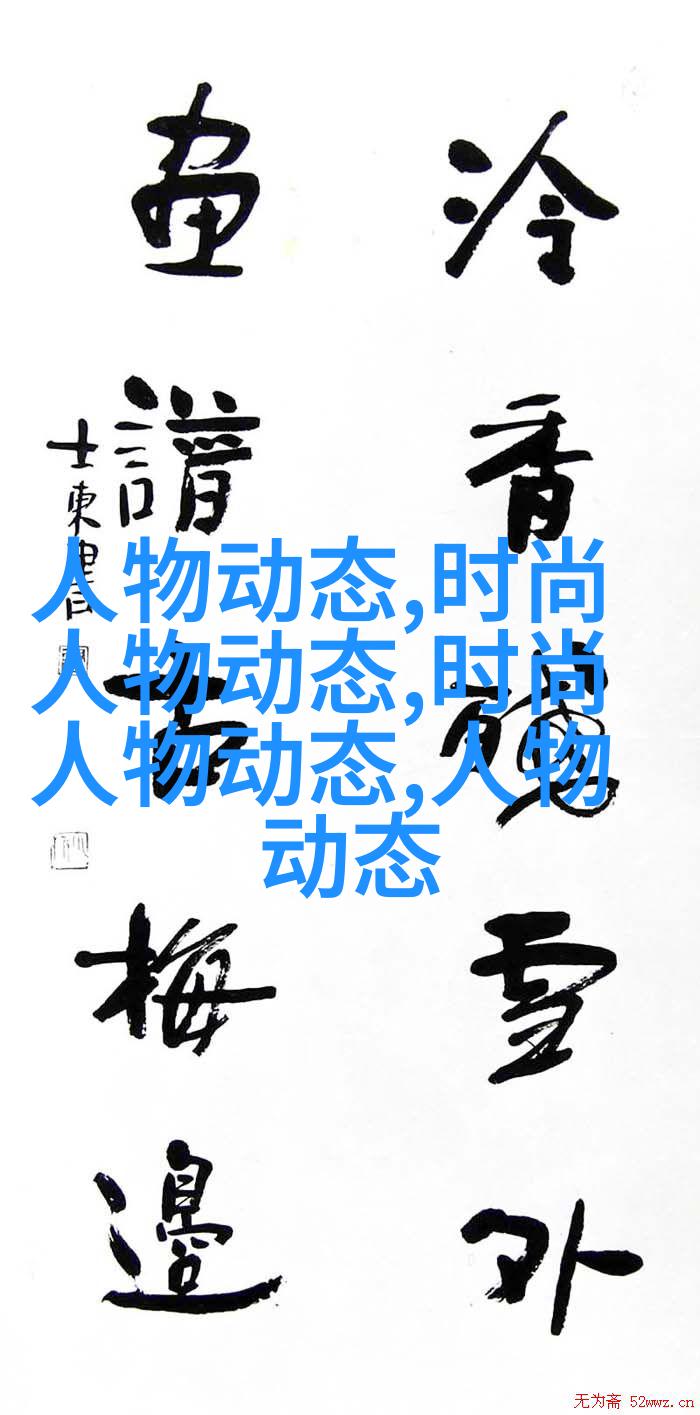 泠香雪外
畫譜古梅邊
士東書
人物动态,时尚
人物动态,时尚
人物动态,人物
动态
无为斋 52wwz.cn